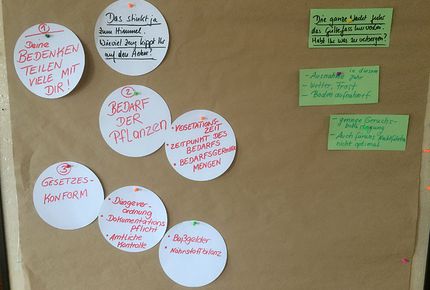 1
Deine
BEDENKEN
TEILEN
VIELE MIT
DIR!
Das stinkt ja
zum Himmel.
Wieviel Zeug kippt Ihr
auf den Acker?
2
BEDARF
DER
PFLANZEN
• VEGETATIONS-
ZEIT
• ZEITPUNKT DES
BEDARFS
• BEDARFSGERECHTE
MENGEN
3
GESETZES-
KONFORM
• Düngever-
ordnung
• Dokumentations
pflicht
• Amtliche
Kontrolle
• Bußgelder
• Nährstoffbilanz
Die ganze Nacht fuhr
das Güllefass
Habt Ihr was zu verbergen?
- Ausnahme in diesem
Jahr
- Wetter, Frost
- Bodenaufnahmef.
- geringe Geruchs-
belästigung
- Auch für uns
nicht optimal